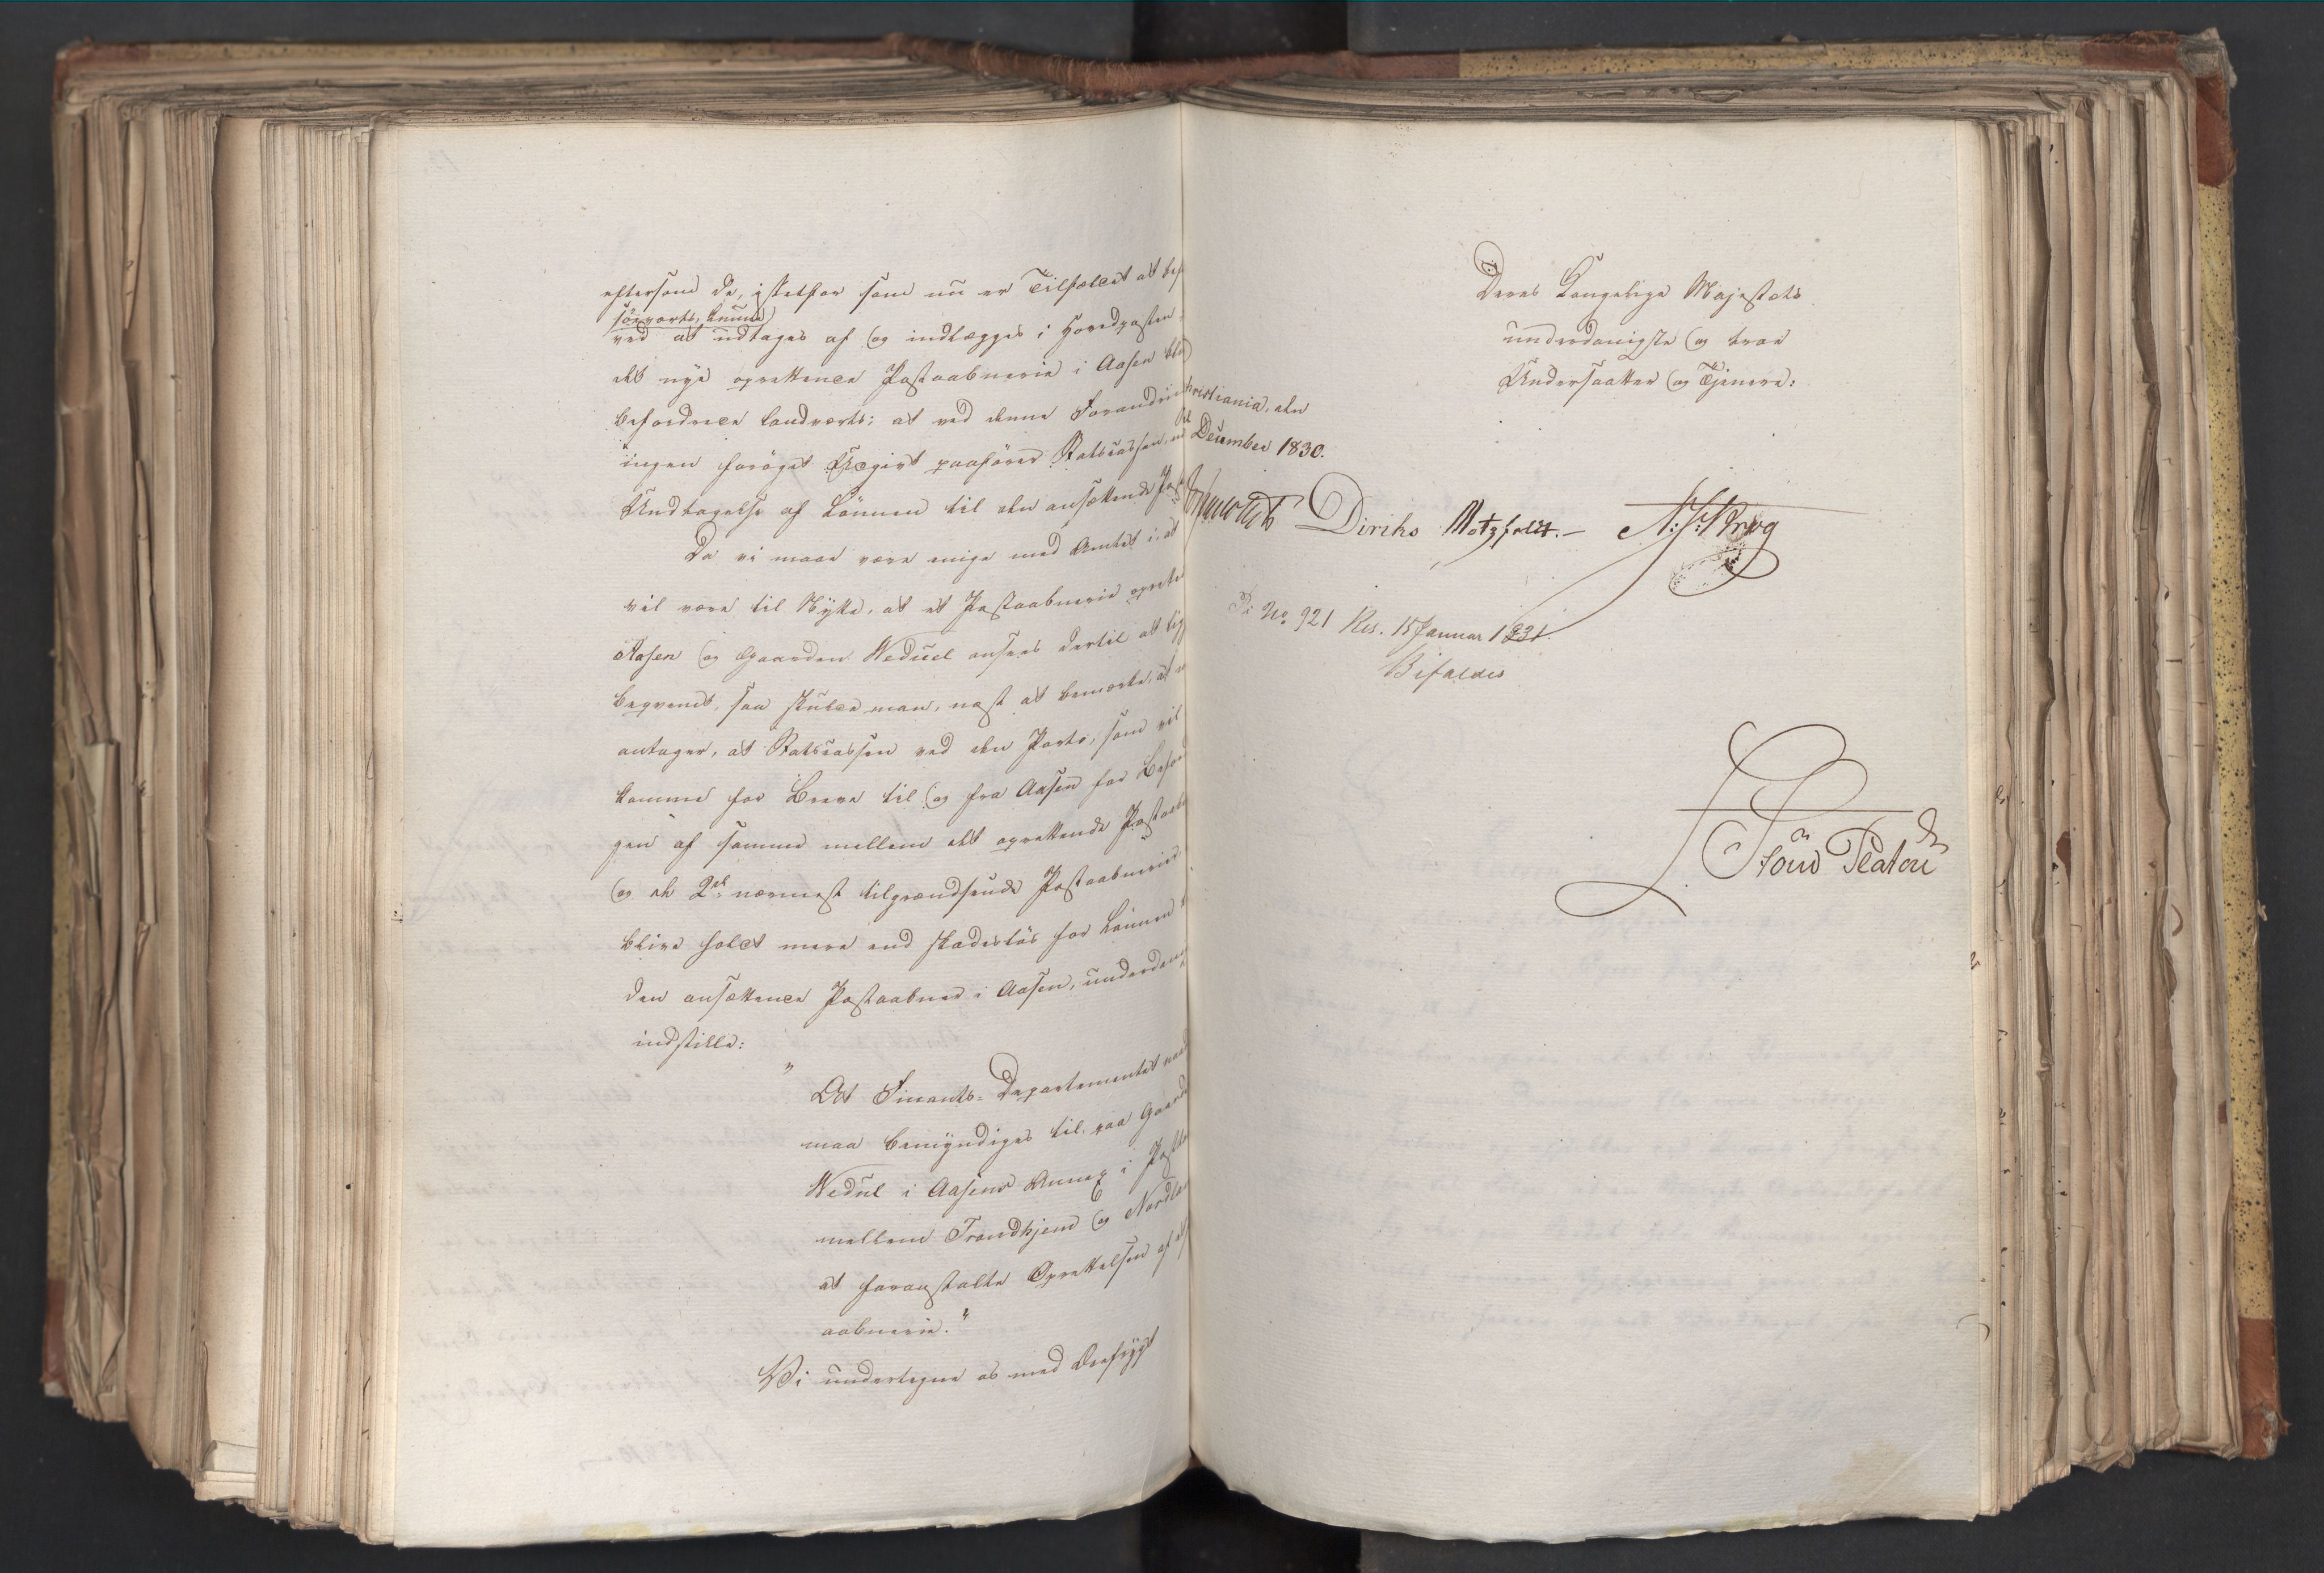 eftersom de, istedfor som nu er Tilfældet at
søeværts, kunne
ved at udtages af og indlægges i Hovedposten
det nye oprettende Postaabnerie i Aasen
befordrede landværts; at ved denne Forandrin
ingen forøget Udgivt paaføres Statscassen, med
Undtagelse af Lönnen til den ansættende Post
Da vi maae være enige med Amtet i, at
vil være til Nytte, at et Postaabnerie oprette
Aasen og Gaarden Vedul ansees dertil at
beqvemt, saa skulle man, næst at bemærke, at
antager, at Statscassen ved den Porto, som vil
komme for Breve til og fra Aasen for Befor
gen af samme mellem det oprettende Postaab
og de 2de nærmest tilgrændsende Postaabnerier
blive holdt mere end skadesløs for Lönnen
den ansættende Postaabner i Aasen, underdan
indstille:
"At Finants-Departementet naad
maa bemyndiges til, paa Gaard
Vedul i Aasens Annex i
mellem Trondhjem og Nordla
at foranstalte Oprettelsen af et
aabnerie."
Vi undertegne os med Dref­rygt
Deres Kongelige Majestæts
underdanigste og troe
Undersaatter og Tjenere:
hristiania, den
December 1830.
Diriks Motzfeldt.- N: J: Krog
No 921 Res. 15 Januar 1831.
Bifaldes
Stoud Platou